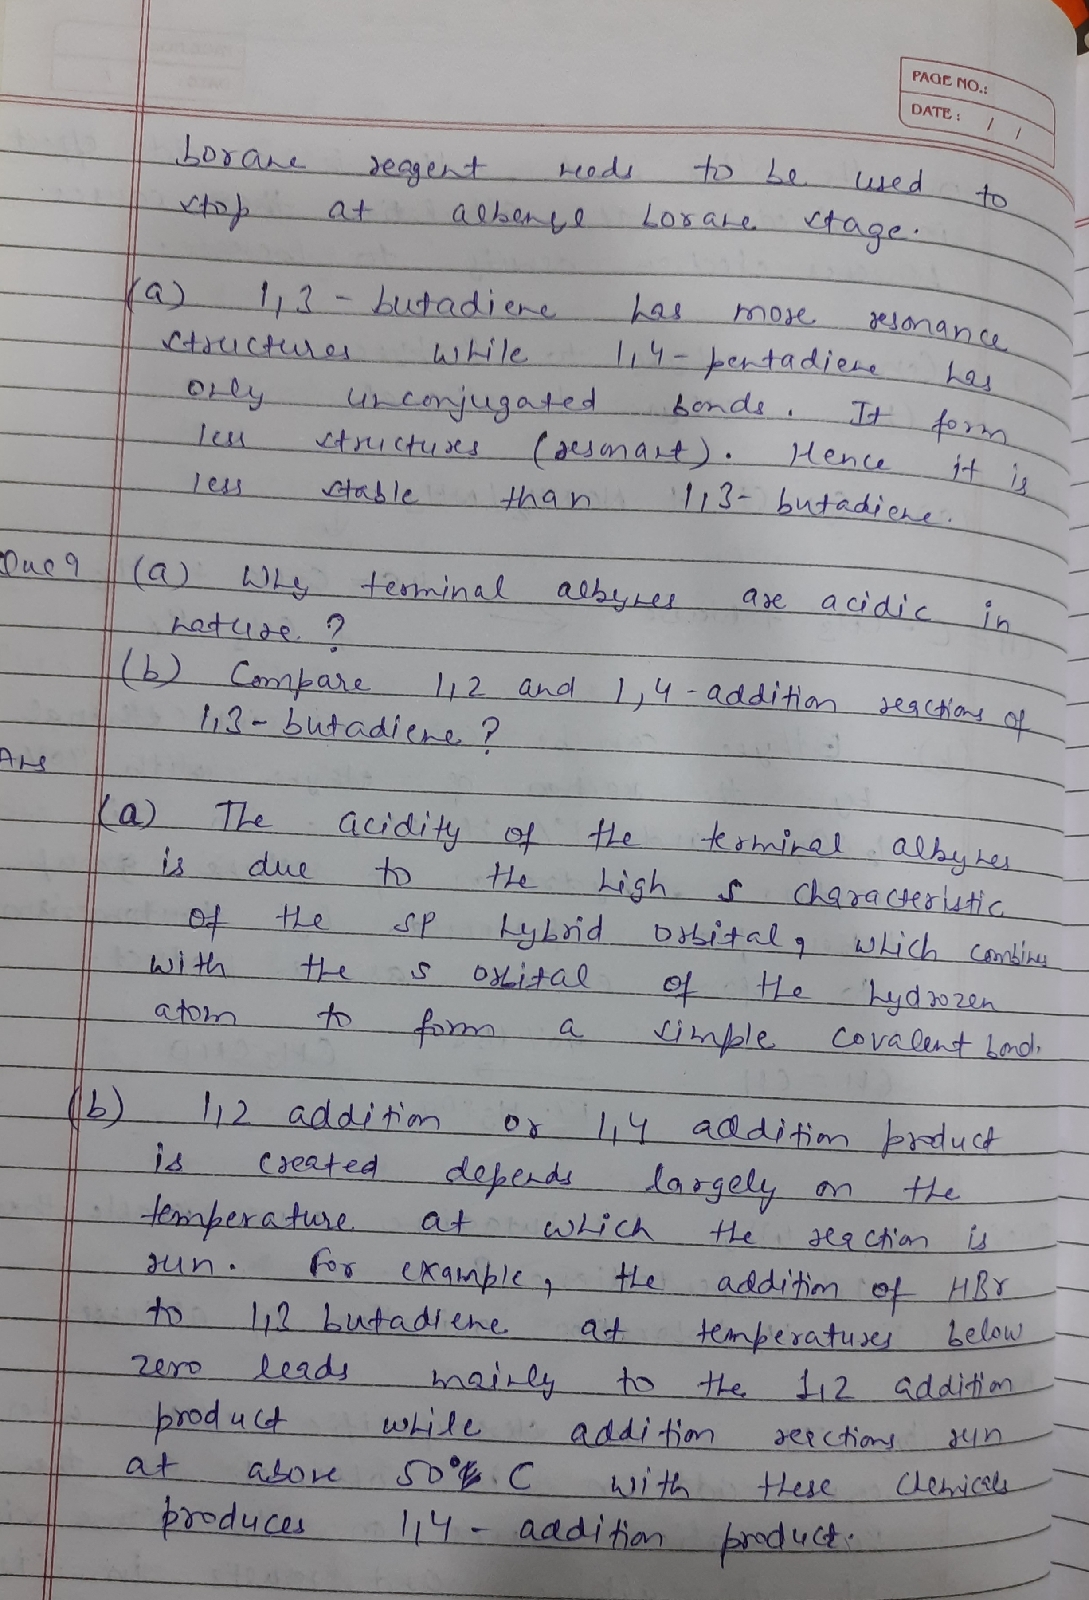 PAGE NO.:
DATE: / /
borane reagent needs to be used to
stop at alkenyl borane stage.
(a) 1,3 - butadiene has more resonance
structures while 1,4 - pentadiene has
only unconjugated bonds. It form
less structures (resonant). Hence it is
less stable than 1,3- butadiene.
Que 9 (a) Why terminal alkynes are acidic in
nature?
(b) Compare 1,2 and 1,4 - addition reactions of
1,3 - butadiene?
Ans
(a) The acidity of the terminal alkynes
is due to the high s characteristic
of the sp hybrid orbital, which combines
with the s orbital of the hydrozen
atom to form a simple covalent bond.
(b) 1,2 addition or 1,4 addition product
is created depends largely on the
temperature at which the reaction is
run. For example, the addition of HBr
to 1,3 butadiene at temperatures below
zero leads mainly to the 1,2 addition
product while addition reactions run
at above 50° C with these chemicals
produces 1,4 - addition product.